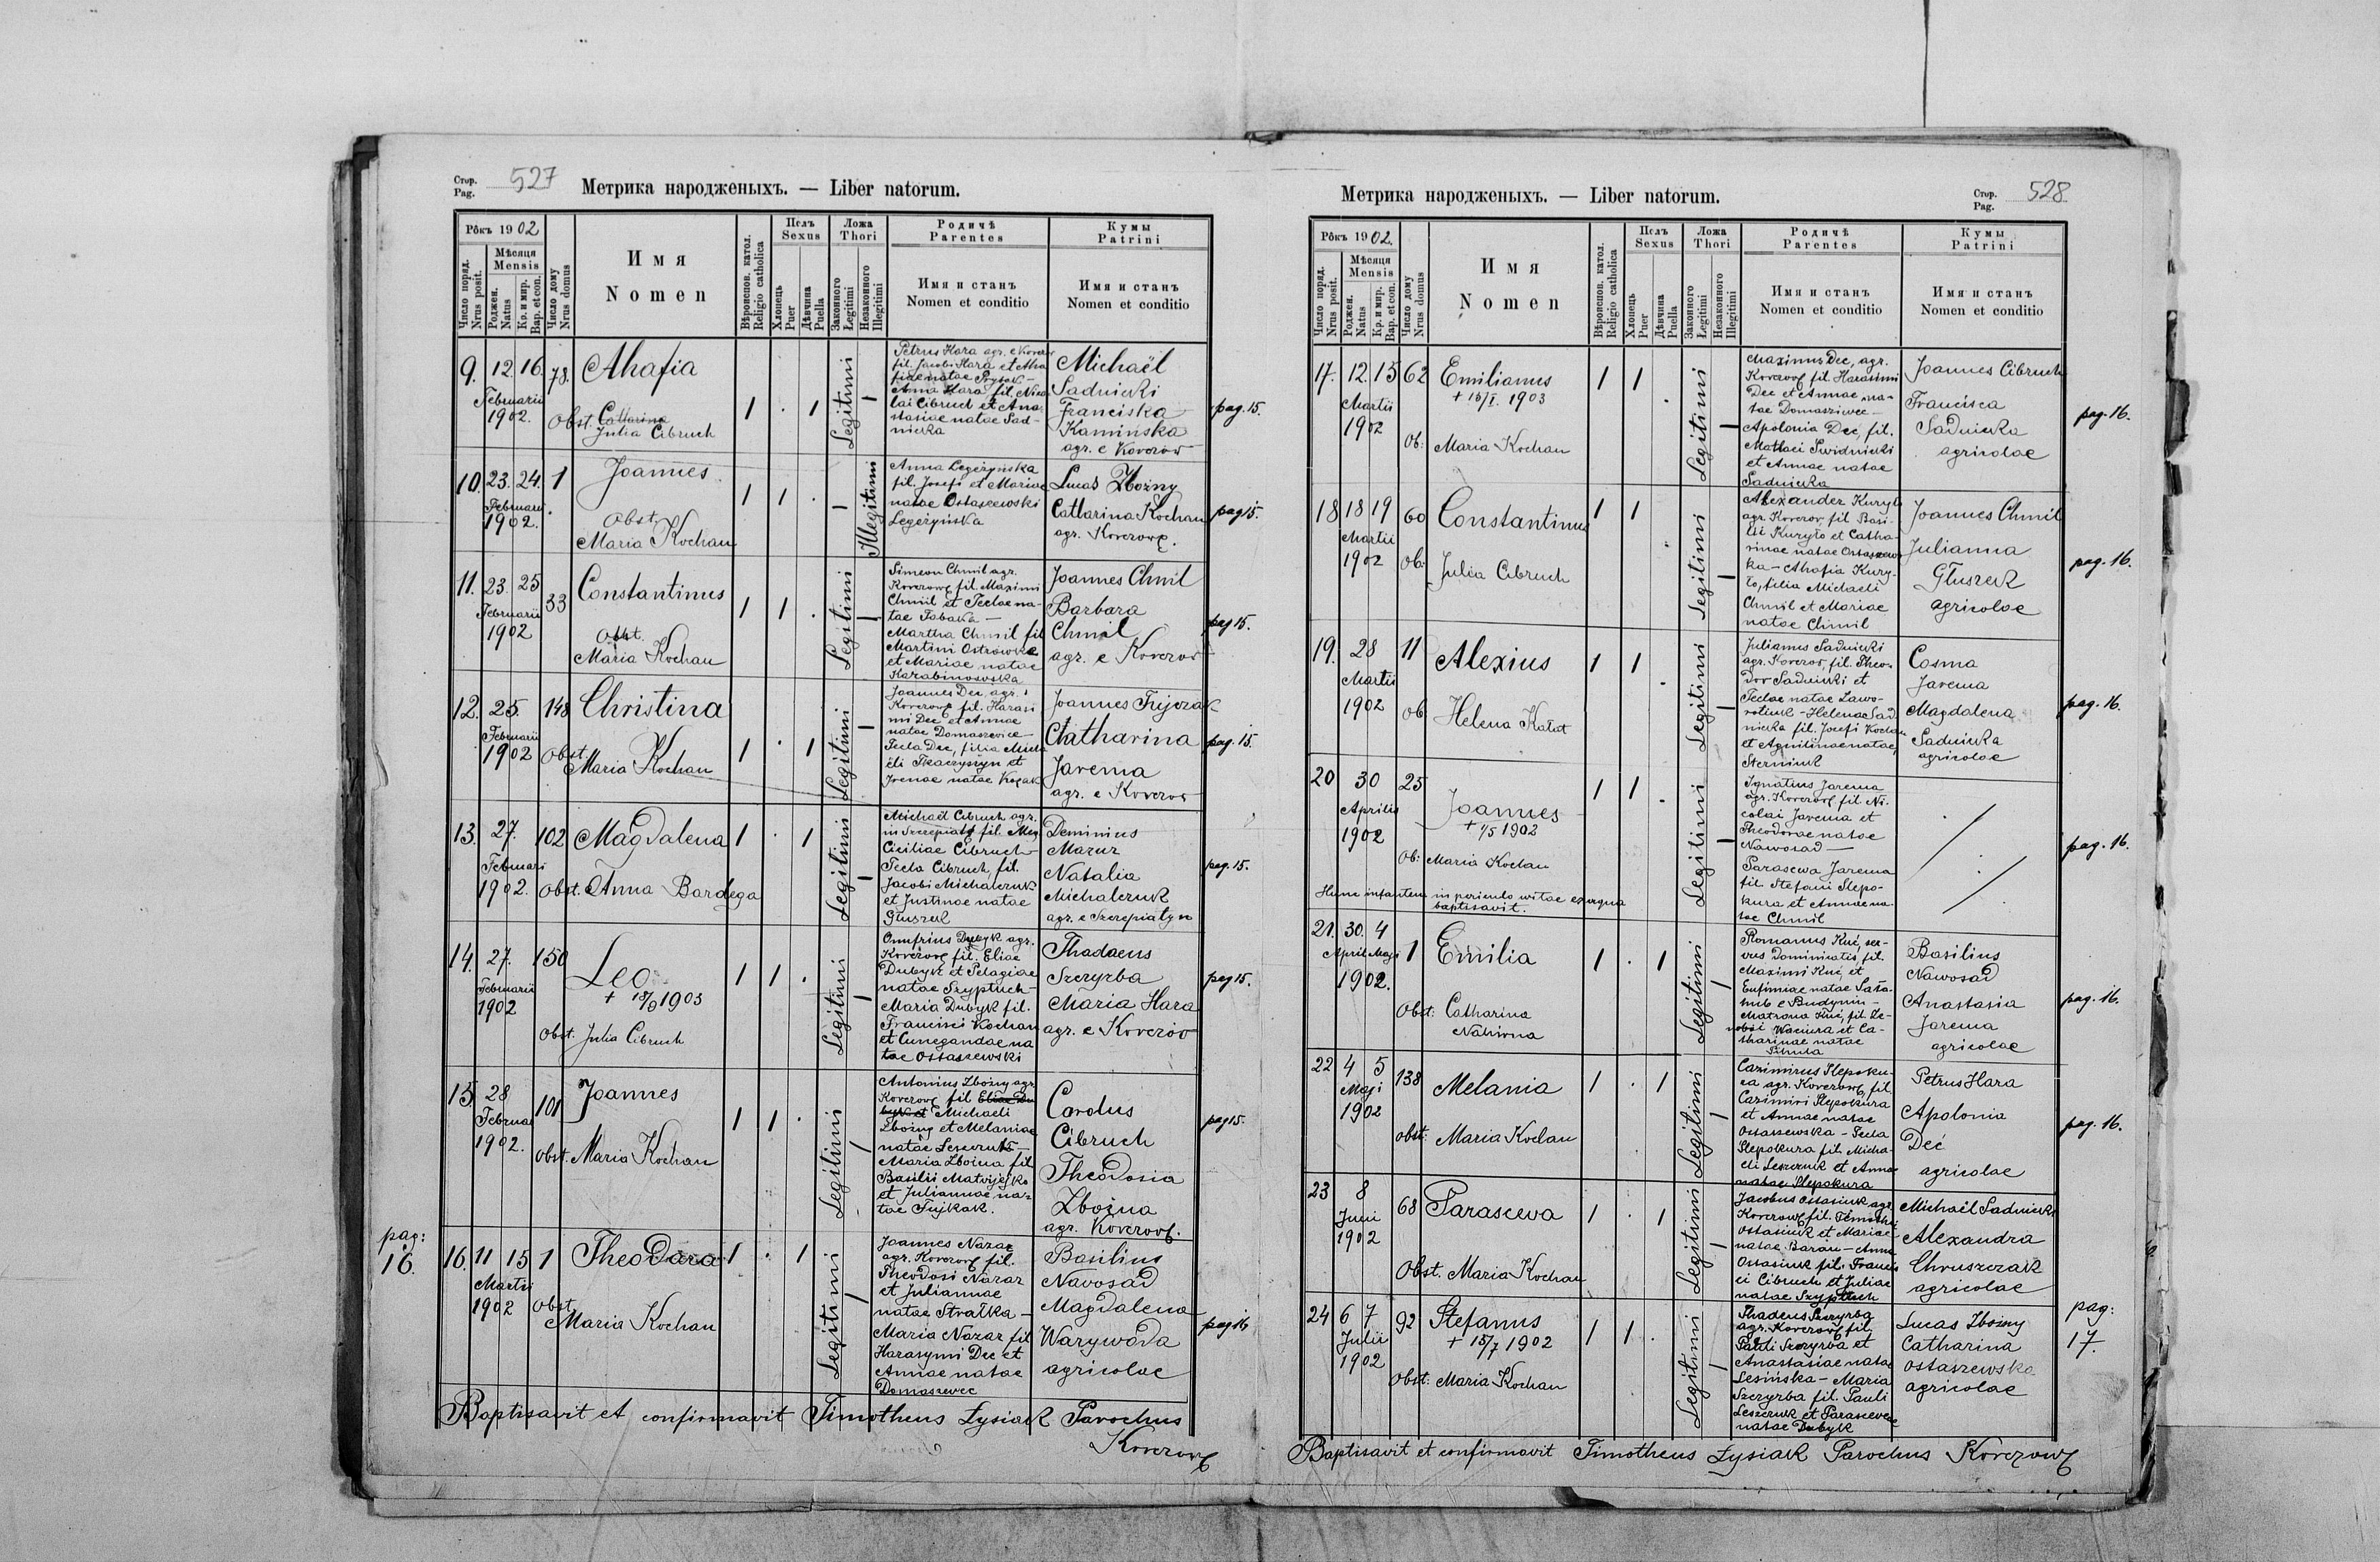 Стор.
Pag. 527
Метрика народженыхъ. — Liber natorum.
Рôкъ 1902
Мѣсяця
Mensis
Число поряд.
Nrus posit.
Роджен.
Natus
Кр. и мир.
Bap. et con.
Число дому
Nrus domus
Имя
Nomen
Вѣроиспов. катол.
Religio catholica
Полъ
Sexus
Хлопець
Puer
Дѣвчина
Puella
Ложа
Thori
Законного
Legitimi
Незаконного
Illegitimi
Родичѣ
Parentes
Имя и станъ
Nomen et conditio
Кумы
Patrini
Имя и станъ
Nomen et conditio
9. 12. 16. 78. Ahafia
Februarii
1902.
Obst. Catharina
Julia Cibruch
1 . 1 Legitimi
Petrus Hara agr. e Korczow
fil. Jacobi Hara et Aha
fiae natae
Anna Hara fil. Nico
lai Cibruch et Ana
stasiae natae Sad-
nicka
Michaël
Sadnicki
Franciska
Kaminska
agr. e Korczow
pag. 15.
10. 23. 24. 1 Joannes
Februarii
1902.
Obst.
Maria Kochan
1 1 . Illegitimi
Anna Legeżyńska
fil. Josefi et Mariae
natae Ostaszewski
Legeżyńska
Lucas Zbożny
Catharina Kochan
agr. Korczow.
pag 15.
11. 23. 25 33 Constantinus
Februarii
1902
Obst.
Maria Kochan
1 1 . Legitimi
Simeon Chmil agr.
Korczow fil. Maximi
Chmil et Teclae na-
tae Tabaka —
Martha Chmil fil
Martini Ostrowka
et Mariae natae
Karabinowska
Joannes Chmil
Barbara
Chmil
agr. e Korczow
pag 15.
12. 25. 148 Christina
Februarii
1902
Obst.
Maria Kochan
1 . 1 Legitimi
Joannes Dec agr.
Korczow fil. Harasi
mi Dec et Annae
natae Domaszewice
Tecla Dec, filia Micha
eli Tkaczyszyn et
Irenae natae Kozak
Joannes Trijczak
Chatharina
Jarema
agr. e Korczow
pag. 15.
13. 27. 102 Magdalena
Februari
1902.
Obst. Anna Bardega
1 . 1 Legitimi
Michaël Cibruch agr.
in Szczepiatyn fil.
Ciciliae Cibruch —
Tecla Cibruch, fil.
Jacobi Michalczuk
et Justinae natae
Głuszek
Deminius
Mazur
Natalia
Michalczuk
agr. e Szczepiatyn
pag. 15.
14. 27. 150 Leo
Februarii
1902
+ 18/9 1903
Obst. Julia Cibruch
1 1 . Legitimi
Onufrius Dubyk agr.
Korczow fil. Eliae
Dubyk et Pelagiae
natae Szyptuch —
Maria Dubyk fil.
Francisci Kochan
et Cunegandae na
tae Ostaszewski
Thadaeus
Szczyrba
Maria Hara
agr. e Korczów
pag 15.
15. 28 101 Joannes
Februar
1902.
Obst. Maria Kochan
1 1 . Legitimi
Antonius Zbożny agr.
Korczow fil Eliae Du
byk et Michaeli
Zbożny et Melaniae
natae Leszczuk —
Maria Zbożna fil
Basilii Matwijejko
et Juliannae na-
tae Trijkak.
Carolus
Cibruch
Theodosia
Zbożna
agr. Korczow.
pag 15.
pag:
16.
16. 11 15 1 Theodora
Martii
1902
Obst.
Maria Kochan
1 . 1 Legitimi
Joannes Nazar
agr. Korczow fil.
Theodosi Nazar
et Juliannae
natae Strałka —
Maria Nazar fil
Harasymi Dec et
Annae natae
Domaszewec
Basilius
Navosad
Magdalena
Warywoda
agricolae
pag 16
Baptisavit et confirmavit Timotheus Łysiak Parochus
Korczow
Метрика народженыхъ. — Liber natorum.
Стор.
Pag. 528
Рôкъ 1902.
Мѣсяця
Mensis
Число поряд.
Nrus posit.
Роджен.
Natus
Кр. и мир.
Bap. et con.
Число дому
Nrus domus
Имя
Nomen
Вѣроиспов. катол.
Religio catholica
Полъ
Sexus
Хлопець
Puer
Дѣвчина
Puella
Ложа
Thori
Законного
Legitimi
Незаконного
Illegitimi
Родичѣ
Parentes
Имя и станъ
Nomen et conditio
Кумы
Patrini
Имя и станъ
Nomen et conditio
17. 12. 13 62 Emilianus
Martii
1902
+ 16/I. 1903
Ob: Maria Kochan
1 1 . Legitimi
Maximus Dec, agr.
Korczow fil. Harasimi
Dec et Annae na-
tae Domasziwec —
Apolonia Dec, fil.
Mathaei Swidnicki
et Annae natae
Sadnicka
Joannes Cibruch
Francisca
Sadnicka
agricolae
pag. 16.
18 18 19 60 Constantinus
Martii
1902
Ob. Julia Cibruch
1 1 . Legitimi
Alexander Kuryło
agr. Korczow fil Basi-
lii Kuryło et Catha-
rinae natae Ostaszews
ka — Ahafia Kury-
ło, filia Michaeli
Chmil et Mariae
natae Chmil
Joannes Chmil
Julianna
Głuszek
agricolae
pag. 16.
19. 28 11 Alexius
Martii
1902
Ob Helena Kałat
1 1 . Legitimi
Julianus Sadnicki
agr. Korczow, fil. Theo-
dor Sadnicki et
Teclae natae Ławo-
rotiuk — Helena Sad
nicka fil. Josefi Kochan
et Aquilinae natae
Sterniuk
Cosma
Jarema
Magdalena
Sadnicka
agricolae
pag. 16.
20 30 25 Joannes
Aprilis
1902
+ 1/5 1902
Ob: Maria Kochan
Hunc infantem in periculo vitae exurgua
baptisavit.
1 1 . Legitimi
Ignatius Jarema
agr. Korczow fil. Ni-
colai Jarema et
Theodorae natae
Nawosad —
Parascewa Jarema
fil Stefani Slepo-
kura et Annae na-
tae Chmil
pag. 16.
21. 30. 4 1 Emilia
April. Maji
1902.
Obst: Catharina
Nahirna
1 . 1 Legitimi
Romanus Kuć, ser-
vus dominicalis, fil.
Maximi Kuć, et
Eufimiae natae Sała-
hub e Budynin —
Matrona Kuć, fil. Ze-
nobii Waciura et Ca-
tharinae natae
Basilius
Nawosad
Anastasia
Jarema
agricolae
pag. 16.
22 4 5 138 Melania
Maji
1902
Obst: Maria Kochan
1 . 1 Legitimi
Cazimirus Slepoku-
ra agr. Korczow fil.
Cazimiri Slepokura
et Annae natae
Ostaszewska — Tecla
Slepokura fil. Micha-
eli Leszczuk et Annae
natae Slepokura
Petrus Hara
Apolonia
Deć
agricolae
pag. 16.
23 8 68 Parascewa
Juni
1902
Obst. Maria Kochan
1 . 1 Legitimi
Jacobus Ostasiuk agr.
Korczow fil. Timothei
Ostasiuk et Mariae
natae Baran — Anna
Ostasiuk fil. Francis
ci Cibruch et Juliae
natae Szyptuch
Michaël Sadnicki
Alexandra
Chruszczak
agricolae
24 6 7 92 Stefanus
Julii
1902
+ 18/7 1902
Obst: Maria Kochan
1 1 . Legitimi
Thadeus Szczyrba
agr. Korczow fil.
Pauli Szczyrba et
Anastasiae natae
Lesińska — Maria
Szczyrba fil. Pauli
Leszczuk et Parascevae
natae Dubyk
Lucas Zbożny
Catharina
Ostaszewska
agricolae
pag:
17.
Baptisavit et confirmavit Timotheus Łysiak Parochus Korczow